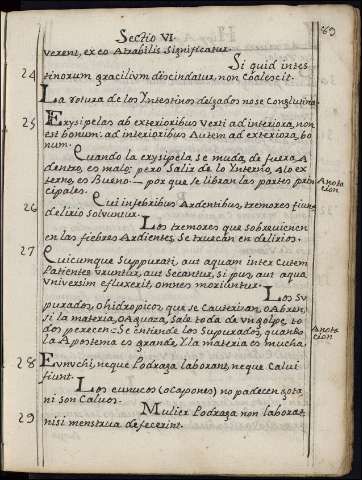 Sectio VI
89
verent, ex eo Atrabilis significatur.
24 Si quid intes
tinorum gracilium discindatur, non Coalescit.
La rotura de los Yntestinos delgados no se Conglutina.
25 Erysipelas ab exterioribus Verti ad interiora, non
est bonum: ad interioribus Autem ad exteriora, bo
num.
Cuando la erysipela se muda, de fuera, A
dentro, es malo; pero Salir de lo Ynterno, A lo ex
terno, es Bueno.— por que se libran las partes prin
cipales.
Anota
cion
26 Cui infebribus Ardentibus, tremores fiunt
delirio solvuntur.
Los tremores que sobrevienen
en las fiebres Ardientes, Se truecan en delirios.
27 Cuicumque Suppurati, aut aquam inter Cutem
Patientes vruntur, aut Secantur, si pus, aut aqua
Vniversim effluxerit, omnes moriuntur.
Los Su
purados, o hidropicos, que se Cauterizan, o Abren,
si la materia, o Aguaza, sale toda de vn golpe, to
dos perecen: Se entiende los Supurados, quando
la Apostema es grande, Y la materia es mucha
Anota
cion
28 Evnvchi, neque Podraga laborant, neque Calui
fiunt.
Los eunucos (o Capones) no padecen gota,
ni son Calvos.
29 Mulier Podraga non laborat,
nisi menstrua defecerint.